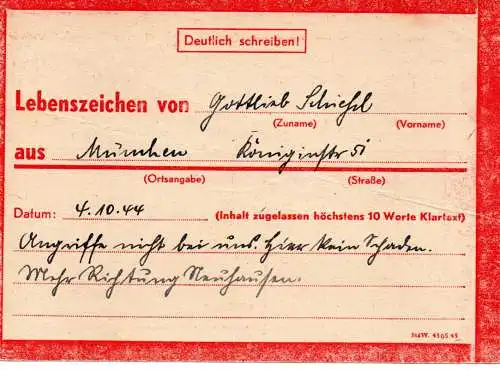 Deutlich schreiben!
Lebenszeichen von Gottlieb
(Zuname) (Vorname)
aus München Königinstr 51
(Ortsangabe) (Straße)
Datum: 4.10.44 (Inhalt zugelassen höchstens 10 Worte Klartext)
Angriffe nicht bei uns. Hier kein Schaden.
Mehr Richtung Neuhausen.